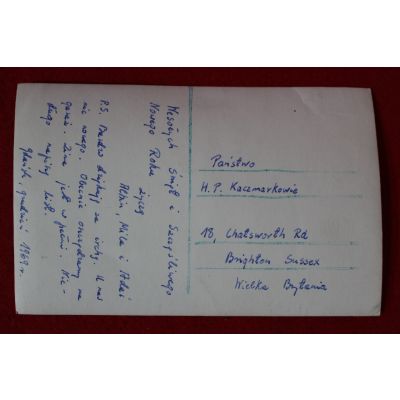 Wesołych Świąt i Szczęśliwego
Nowego Roku
życzą
Mila i Adaś
P.S. Bardzo dziękuję za U nas
nic nowego. Obecnie oszczędzamy na
Zima jest w pełni. Nie-
długo napiszę list.
grudzień 1969 r.
Państwo
H. P. Kaczmarkowie
18, Chatsworth Rd
Brighton Sussex
Wielka Brytania